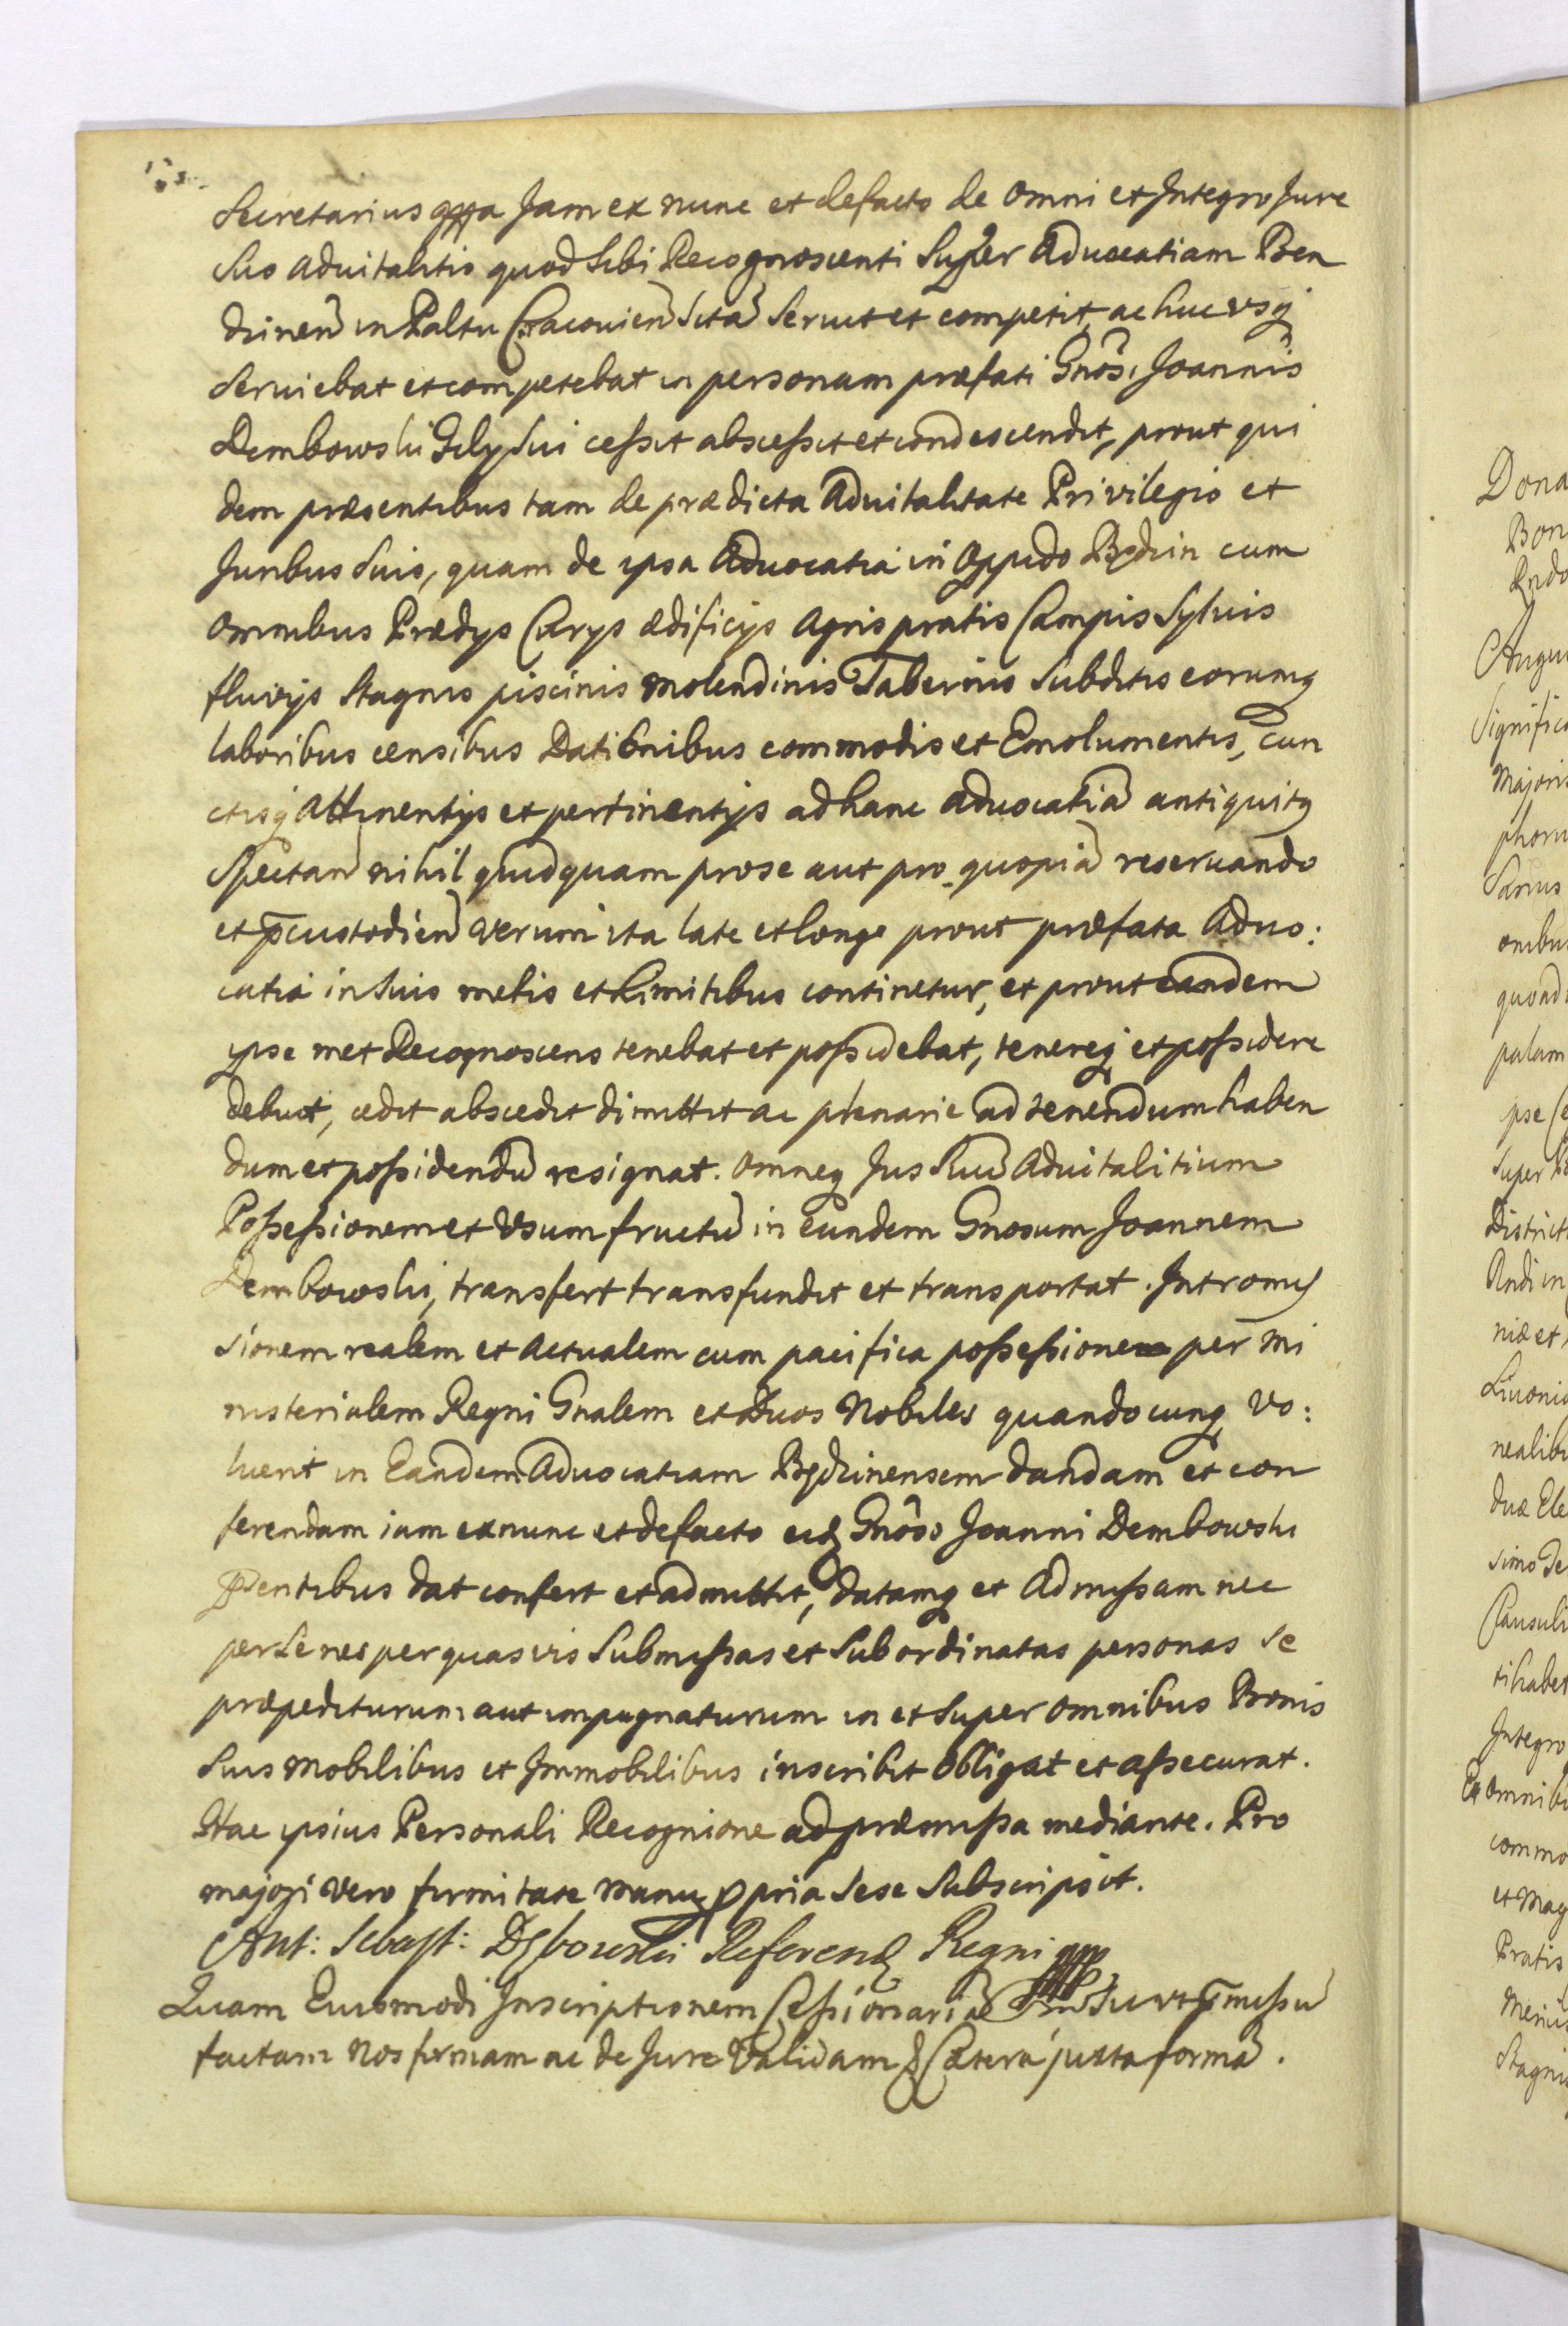 Secretarius Jam ex nunc et defacto de omni et Integro Jure
Suo aduitalitio quod Sibi Recognoscenti Super Aduocatiam Ben
dzinen in Paltu Cracouien Sita Seruit et competit, ac huc vsq
Seruiebat et competebat in personam præfati Gnosi Joannis
Dembowski Filij Sui ceßit absceßit et condescendit, prout qui
dem præsentibus tam de prædicta Aduitalitate Privilegio et
Juribus Suis, quam de ipsa Aduocatia in Oppido Będzin cum
omnibus Prædijs Curijs ædificijs Agris pratis Campis Syluis
fluvijs Stagnis piscinis molendinis Tabernis Subditis eorumq
laboribus censibus Dationibus commodis et Emolumentis, cun
ctisq attinentijs et pertinentijs ad hanc aduocatia antiquitq
Spectan nihil quidquam pro se aut pro quopia reseruando
et pcustodien verum ita late et longe prout præfata Aduo:
catia in Suis metis et Limitibus continetur, et prout eandem
ipse met Recognoscens tenebat et poßidebat, tenereq et poßidere
debuit, cedit abscedit dimittit ac plenarie ad tenendum haben
dum et poßidendu resignat. omneq Jus Suu Aduitalitium
Poßeßionem et Vsum fructu in eundem Gnosum Joannem
Dembowski, transfert transfundit et transportat. Intromis
sionem realem et actualem cum pacifica poßeßione per mi
nisterialem Regni Gnalem et duos Nobiles quandocunq vo:
luerit in Eandem Aduocatiam Będzinensem dandam et con
ferendam iam exnunc et defacto eid Gnoso Joanni Dembowski
pntibus dat confert et admittit, datamq et Admißam nec
per Se nec per quasvis Submißas et Subordinatas personas Se
præpediturum aut impugnaturum in et Super omnibus Bonis
Suis mobilibus et Immobilibus inscribit obligat et aßecurat.
Hac ipsius Personali Recognione ad præmißa mediante. Pro
majori vero firmitate manu ppria Sese Subscripsit.
Ant: Sebast: Dębowski Referend Regni
Quam Eiusmodi Inscriptionem Ceßionaria vt pmißu
factam nos firmam ac de Jure Validam & Cætera juxta forma.
Dona
Bon
Endo
Augu
Signific
Majoris
phoru
Sarius
onibu
quond
palam
pse
Super
District
Andi in
niæ et
Liuonia
nealibu
duæ Ele
simo
Consuli
ti habet
Integro
Ex omnibu
commo
et Mag
Pratis
Stagnis